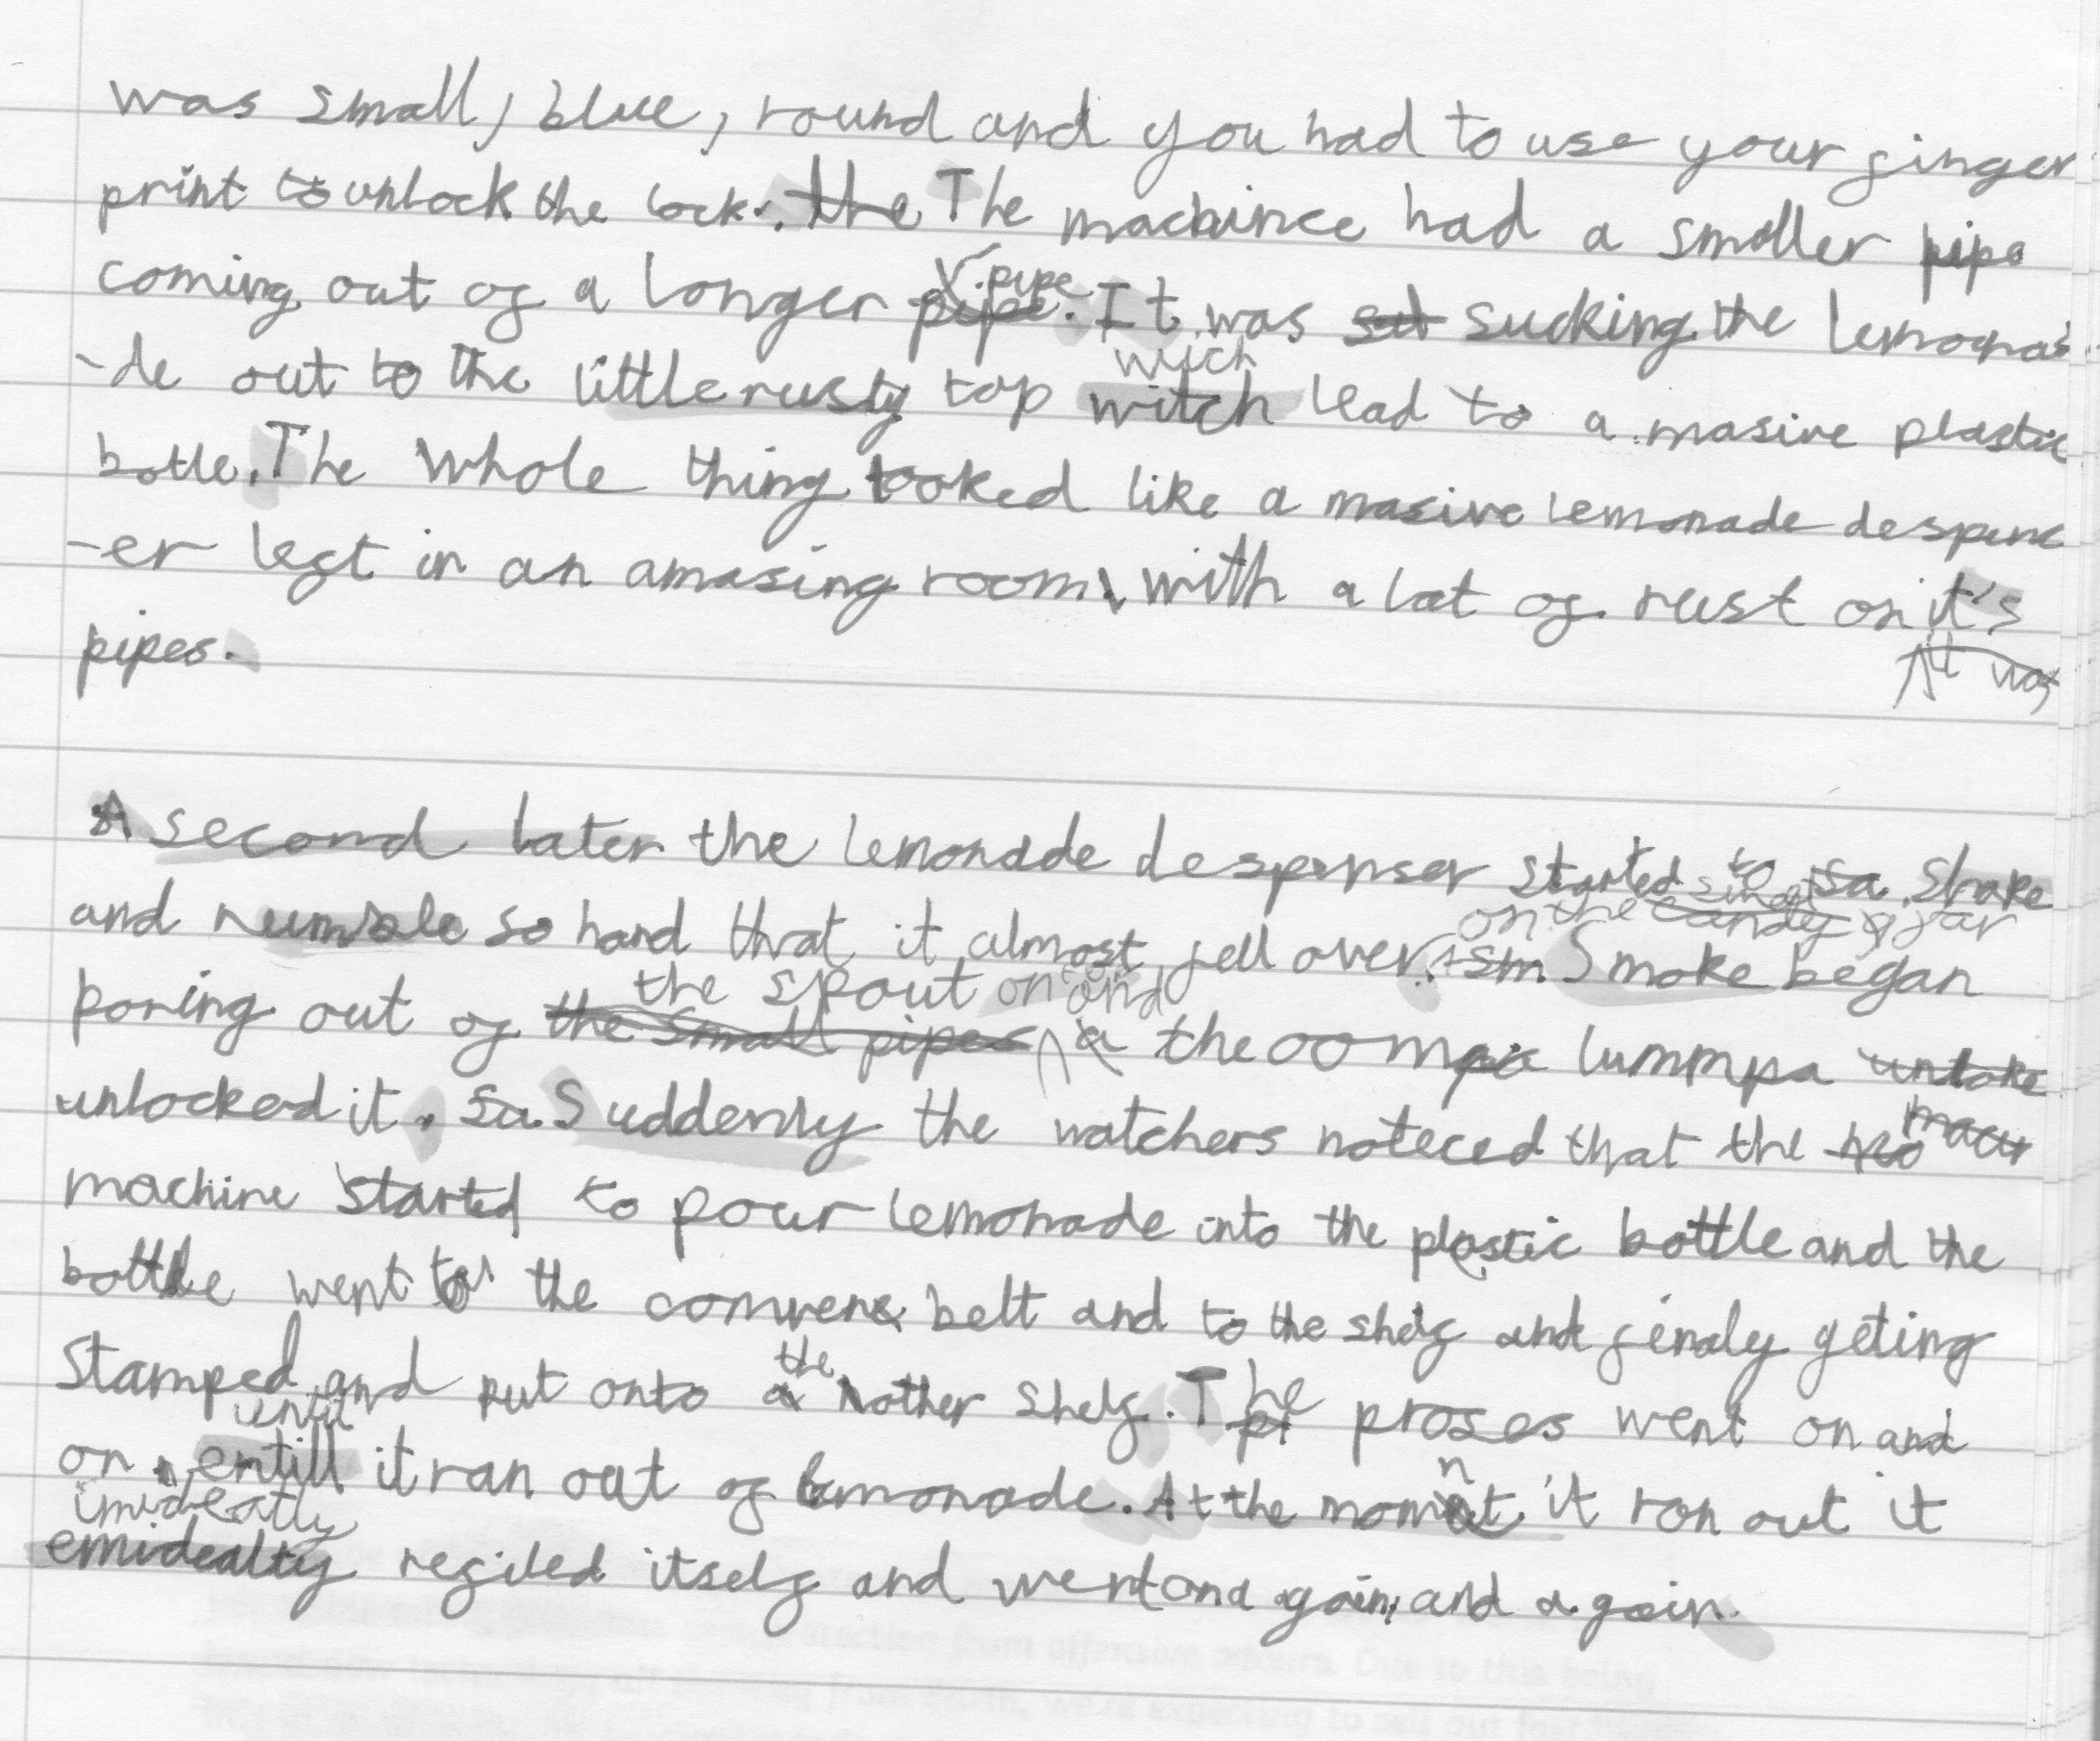 was small, blue, round and you had to use your finger
print to unlock the lock. the The machince had a smaller pipe
pipe
coming out of a longer pipe. It was sut sucking the lemona
wich
-de out to the little rusty tap witch lead to a masive plastic
botle. The whole thing looked like a masive lemonade despenc
-er left in an amasing room, with a lot of rust on it's
pipes.
it was
A second later the lemonade despenser started to sa shake
on the candy jar
and rumble so hard that it almost fell over. sm Smoke began
the spout on and
poring out of the small pipes a the oompa lummpa untoke
unlocked it. Su Suddenly the watchers noteced that the
machine started to pour lemonade into the plastic bottle and the
bottle went to the belt and to the shelf and finaly geting
the
stamped and put onto a nother shelf. The proses went on and
until
on entill it ran out of lemonade. At the moment it ran out it
imideatly
emidealty refiled itself and went on a gain, and a gain.